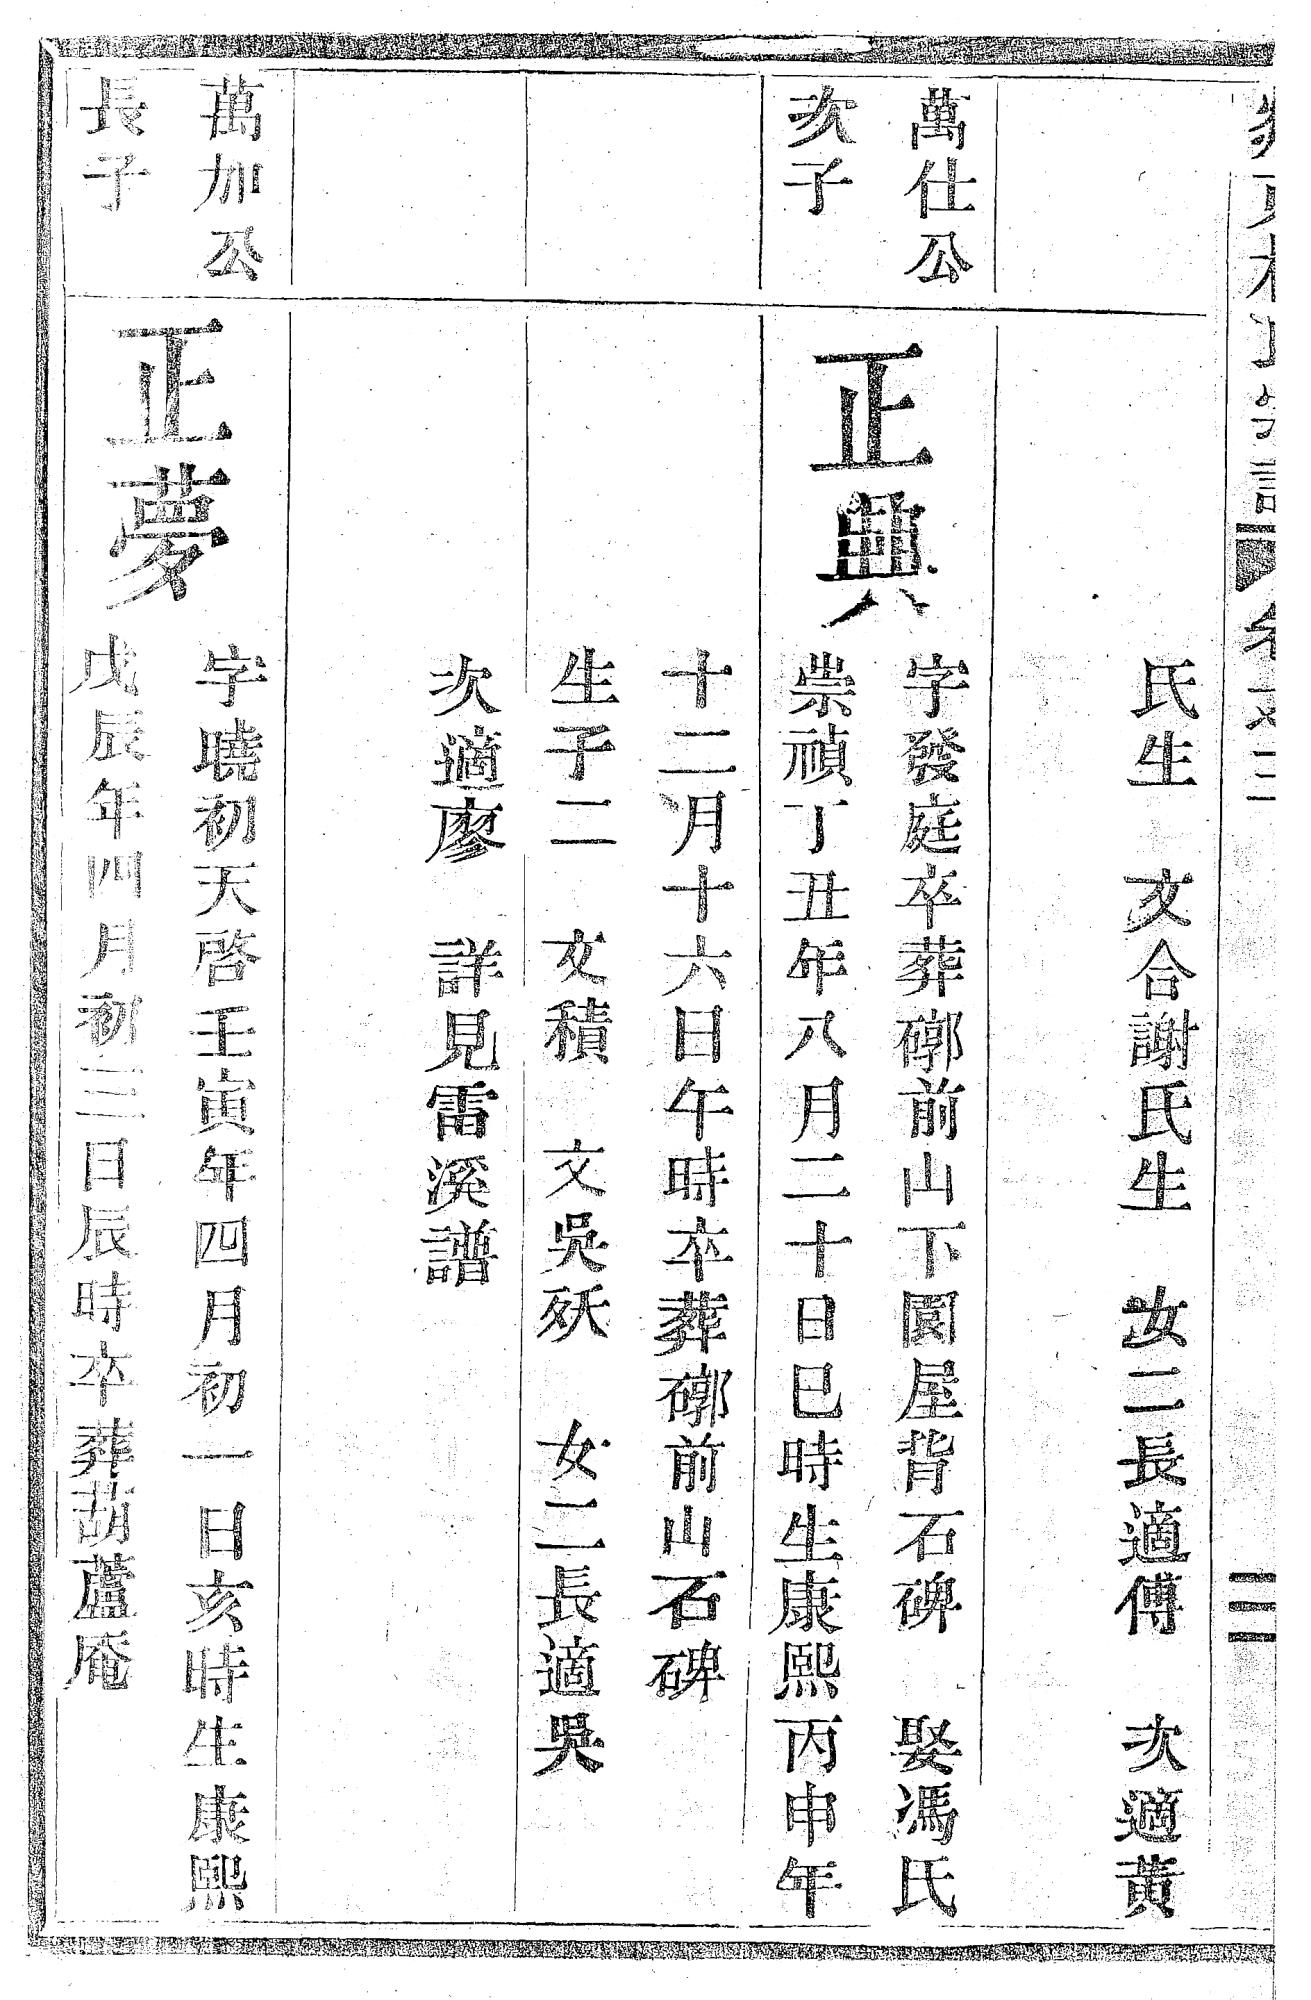 氏生　文合謝氏生　女二長適傅　次適黃
萬仕公
次子
正典
字發庭卒葬𥕖前山下園屋背石碑　娶馮氏
崇禎丁丑年八月二十日巳時生康熙丙申年
十二月十六日午時卒葬𥕖前山石碑
生子二　文積　文吳殀　女二長適吳
次適廖　詳見雷溪譜
萬加公
長子
正夢
字曉初天啓壬寅年四月初一日亥時生康熙
戊辰年四月初三日辰時卒葬葫蘆庵